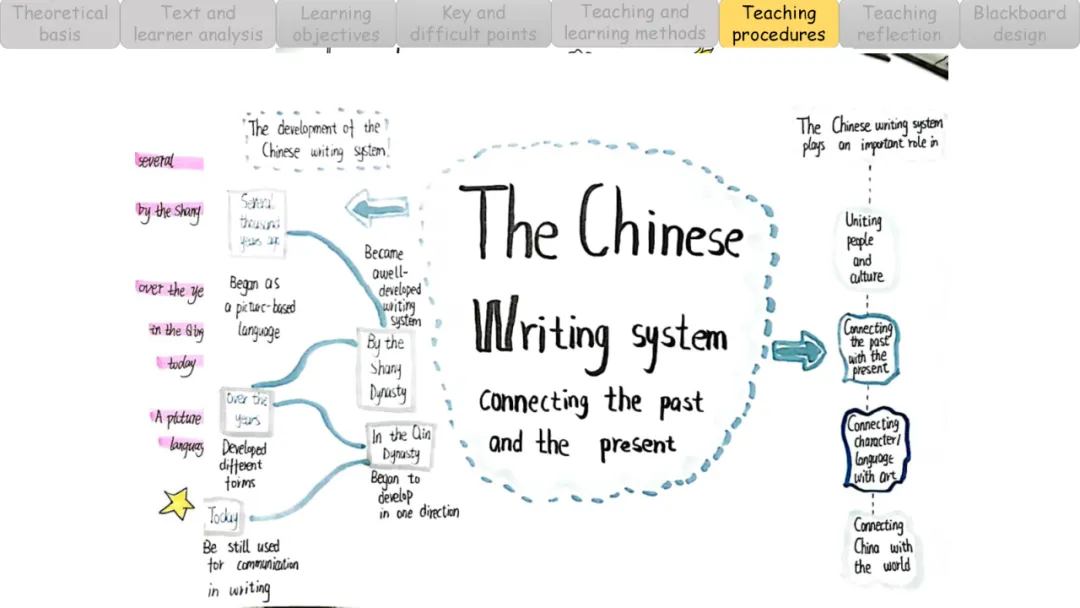 Theoretical
basis
Text and
learner analysis
Learning
objectives
Key and
difficult points
Teaching and
learning methods
Teaching
procedures
Teaching
reflection
Blackboard
design
The development of the
Chinese writing system
several
by the Shang
over the ye
in the Qin
today
A picture
Several
thousand
years ago
Began as
a picture-based
language
Became
a well-
developed
writing
system
By the
Shang
Dynasty
Over the
years
Developed
different
forms
In the Qin
Dynasty
Began to
develop
in one direction
Today
Be still used
for communication
in writing
The Chinese
Writing system
connecting the past
and the present
The Chinese writing system
plays an important role in
Uniting
people
and
culture
Connecting
the past
with the
present
Connecting
character/
language
with art
Connecting
China with
the world